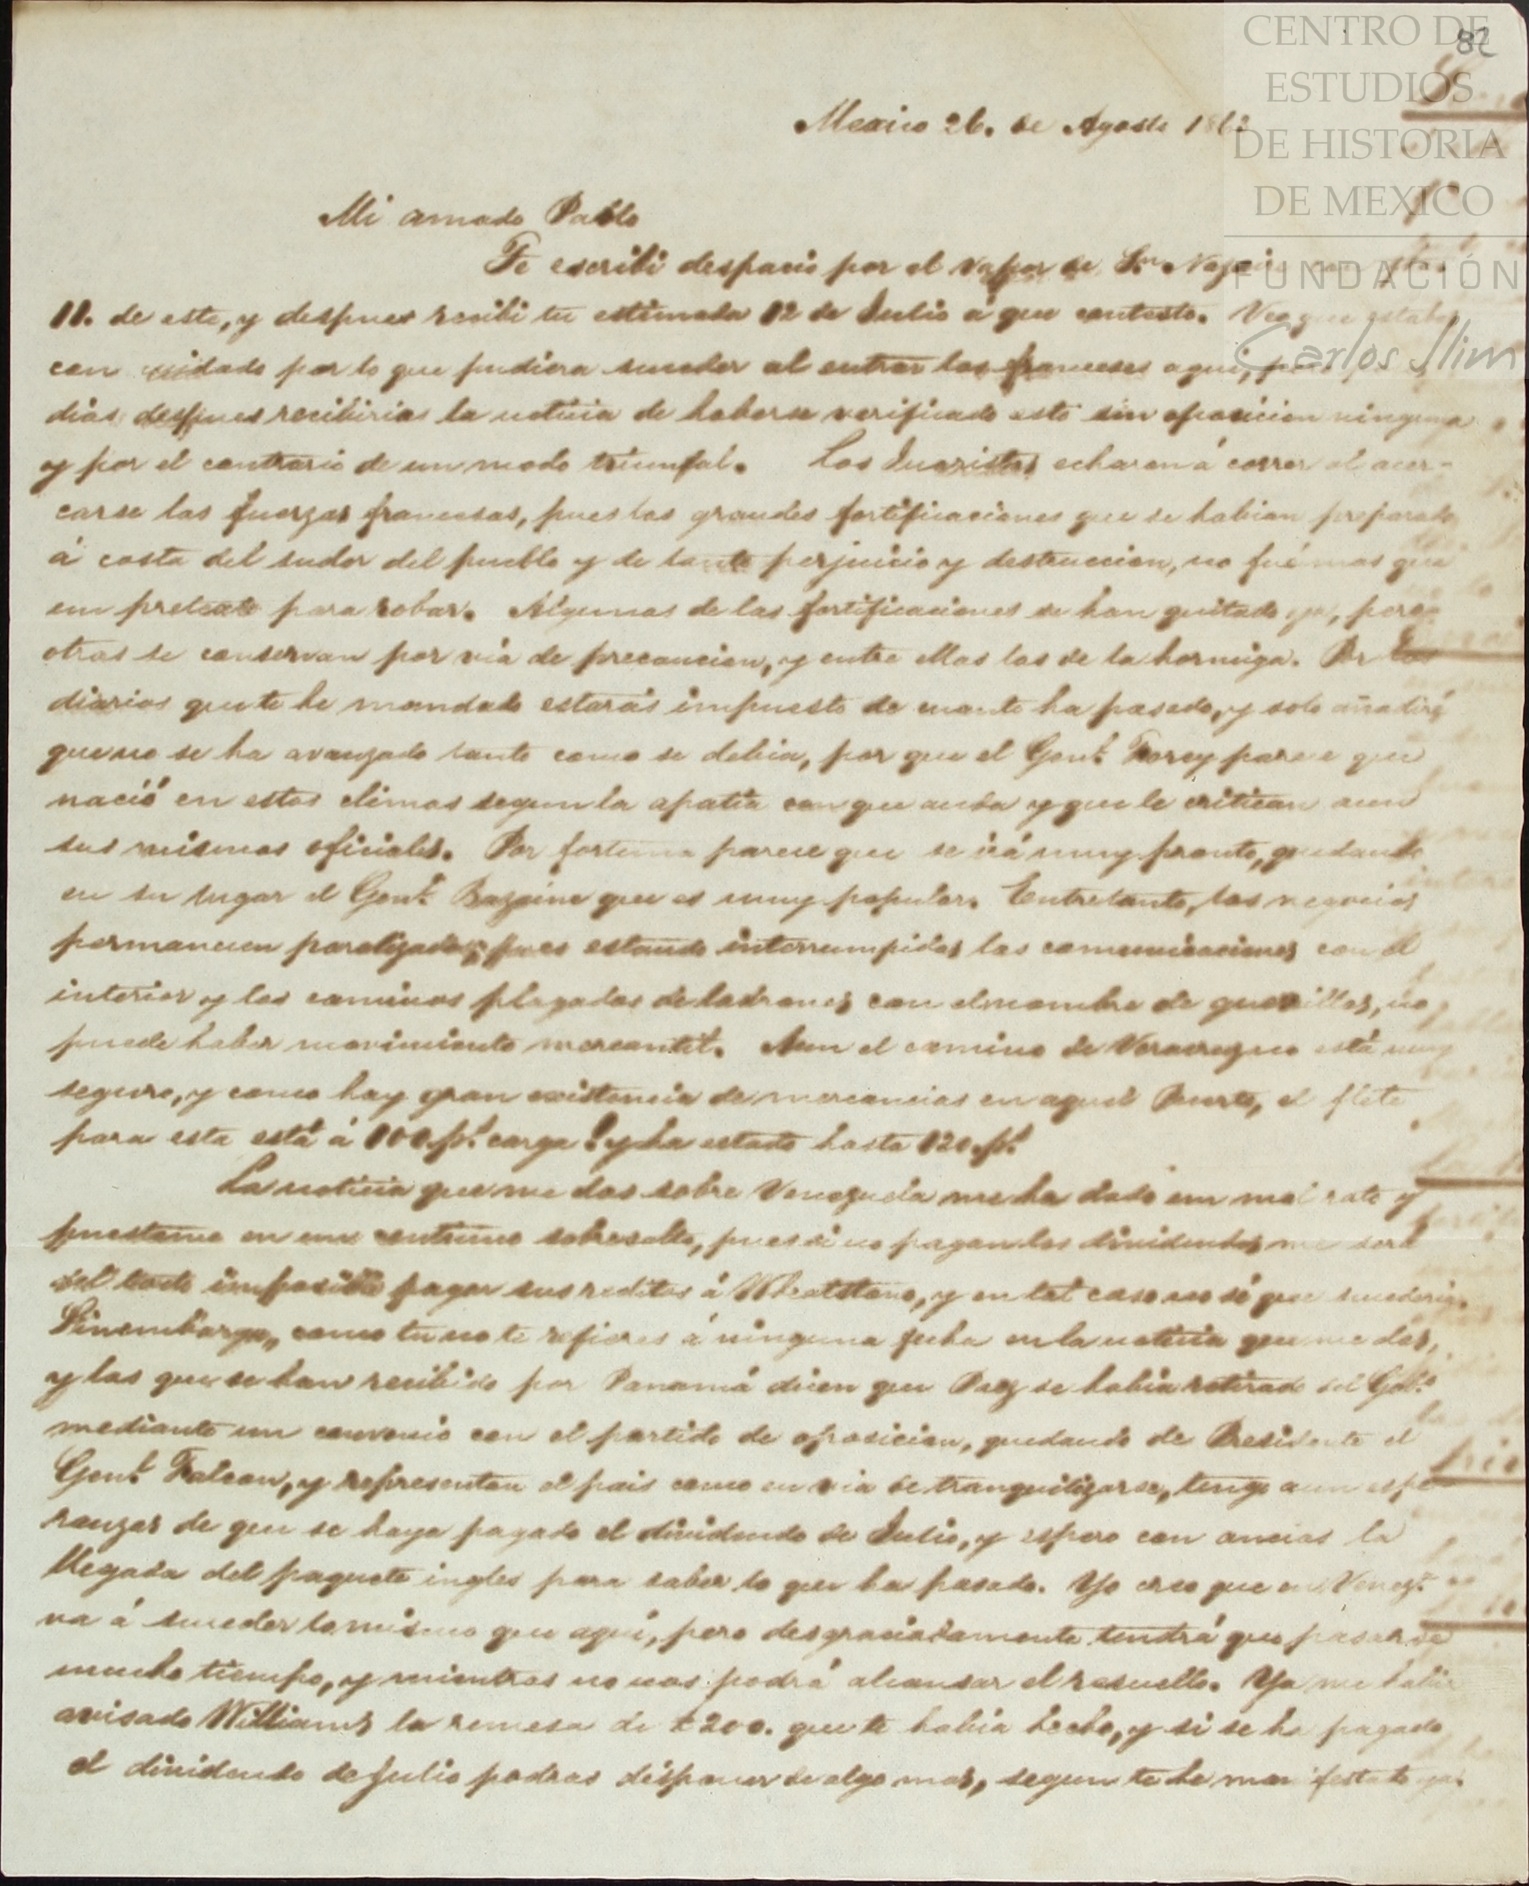 CENTRO DE
ESTUDIOS
DE HISTORIA
DE MEXICO
FUNDACIÓN
Carlos Slim
82
Mexico 26. de Agosto 186
Mi amado Pablo
Te escribi despacio por el vapor de Sn. Nazair con fha.
11. de este, y despues recibi tu estimada 12 de Julio á que contesto. Veo que estabas
con cuidado por lo que pudiera suceder al entrar los franceses aqui, pero
dias despues recibirias la noticia de haberse verificado esto sin oposicion ninguna
y por el contrario de un modo triunfal. Los Juaristas echaron á correr al acer-
carse las fuerzas francesas, pues las grandes fortificaciones que se habian preparado
á costa del sudor del pueblo y de tanto perjuicio y destruccion, no fué mas que
un pretexto para robar. Algunas de las fortificaciones se han quitado ya, pero
otras se conservan por via de precaucion, y entre ellas las de la hormiga. Por los
diarios que te he mandado estarás impuesto de cuanto ha pasado, y solo añadiré
que no se ha avanzado tanto como se debia, por que el Genl. Forey parece que
nació en estos climas segun la apatia con que anda y que le critican aun
sus mismos oficiales. Por fortuna parece que se irá muy pronto, quedando
en su lugar el Genl. Bazaine que es muy popular. Entretanto, los negocios
permanecen paralizados, pues estando interrumpidas las comunicaciones con el
interior y los caminos plagados de ladrones con el nombre de guerrillas, no
puede haber movimiento mercantil. Aun el camino de Veracruz no está muy
seguro, y como hay gran existencia de mercancias en aquel Puerto, el flete
para esta está á 100 ps. carga! y ha estado hasta 120. ps.
La noticia que me das sobre Venezuela me ha dado un mal rato y
puestome en un continuo sobresalto, pues si no pagan los dividendos me será
del todo imposible pagar sus reditos á Wheatstone, y en tal caso no sé que sucederia.
Sinembargo, como tu no te refieres á ninguna fecha en la noticia que me das,
y las que se han recibido por Panamá dicen que Paez se habia retirado del Gobo.
mediante un convenio con el partido de oposicion, quedando de Presidente el
Genl. Falcon, y representan el pais como en via de tranquilizarse, tengo aun espe-
ranzas de que se haya pagado el dividendo de Julio, y espero con ancias la
llegada del paquete ingles para saber lo que ha pasado. Yo creo que en Veneza.
va á suceder lo mismo que aqui, pero desgraciadamente tendrá que pasarse
mucho tiempo, y mientras no nos podrá alcansar el resuello. Ya me habia
avisado Williams la remesa de £200. que te habia hecho, y si se ha pagado
el dividendo de Julio podras disponer de algo mas, segun te he manifestado ya.